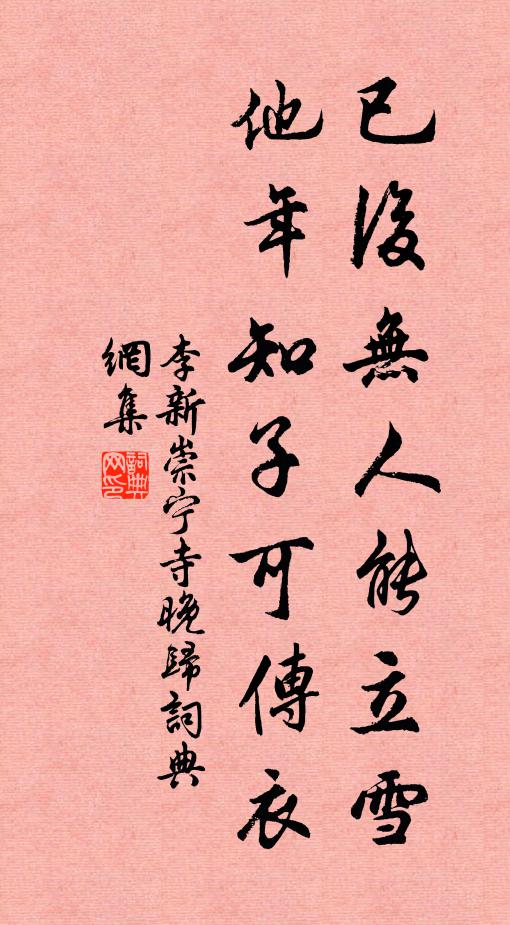 已後無人能立雪
他年知子可傳衣
李新崇宁寺晚歸詞典
網集
詞典
网印